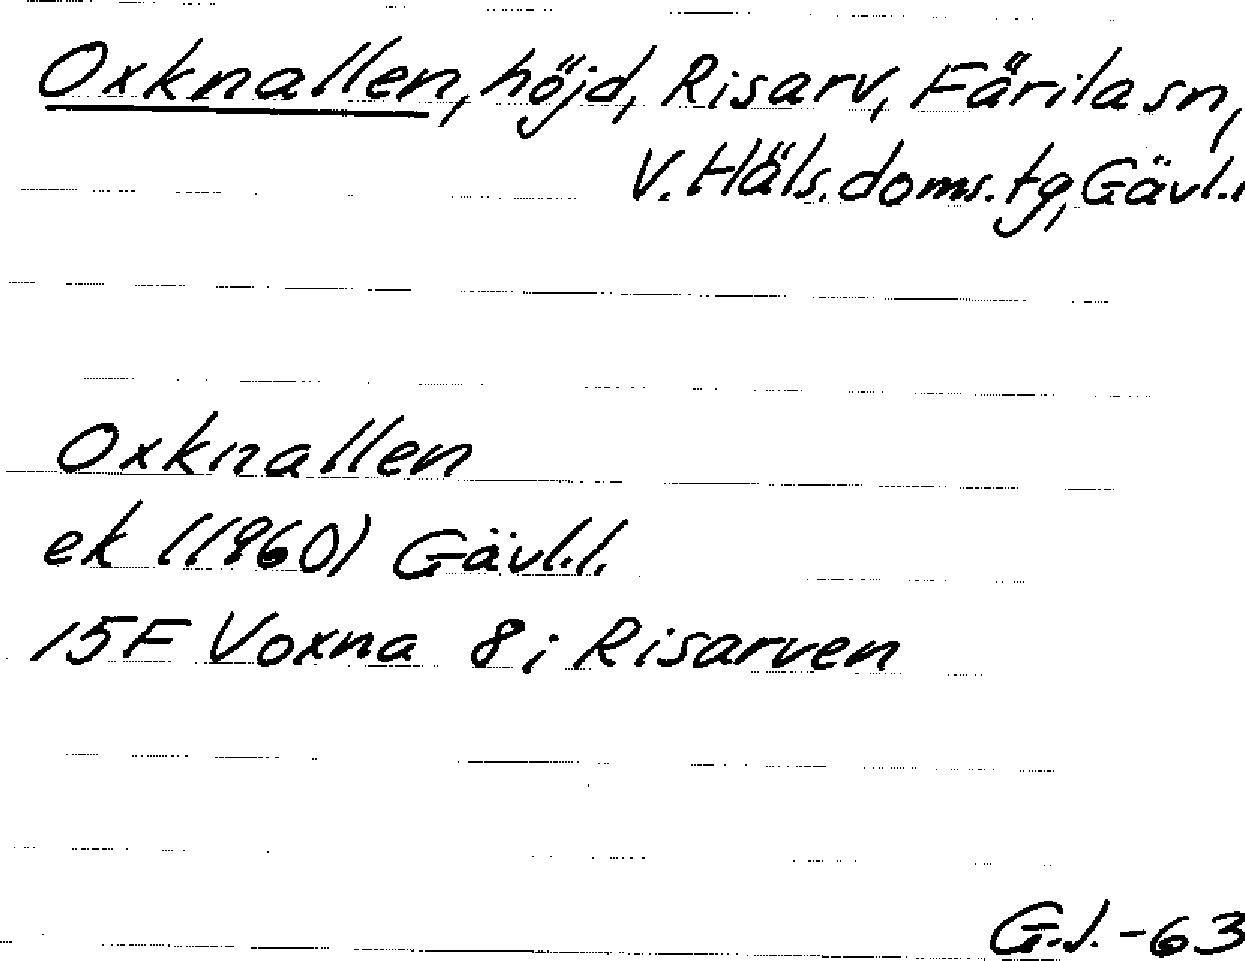 Oxknallen, höjd, Risarv, Färila sn,
V. Häls. doms. tg, Gävl.l
Oxknallen
ek (1960) Gävl.l.
15F Voxna 8i Risarven
G.J.-63